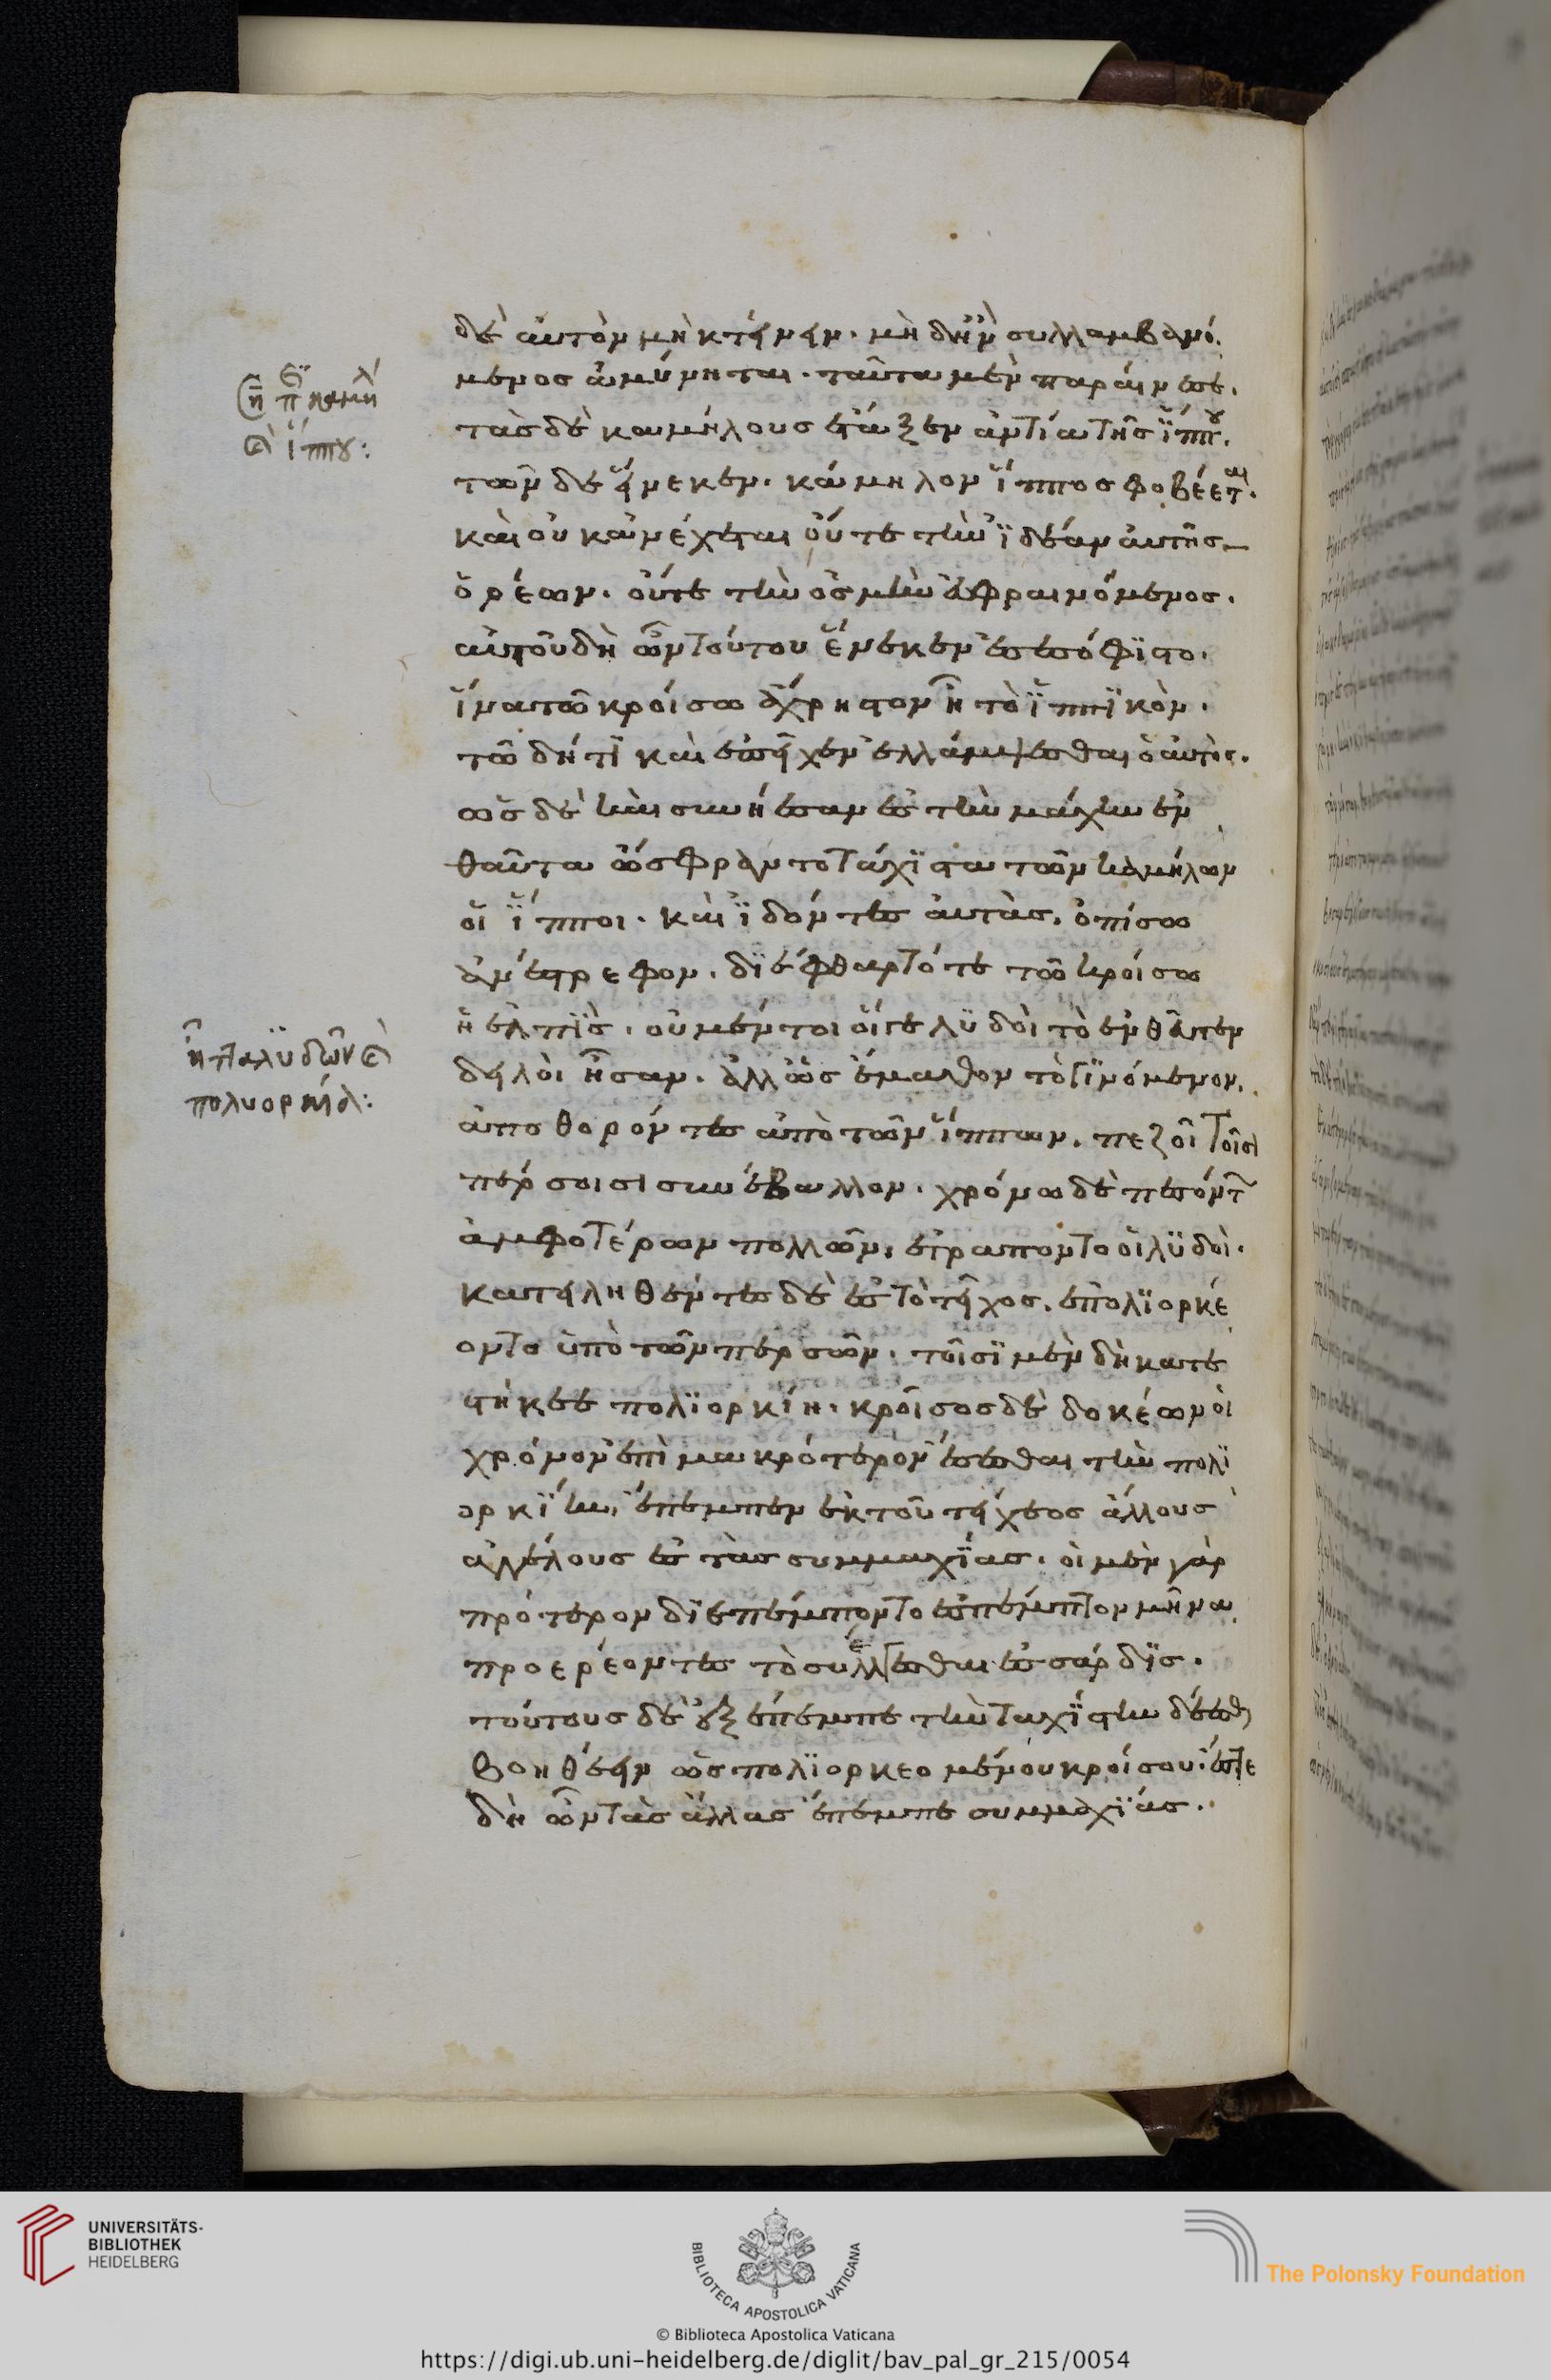 δὲ αὐτὸν μὴ κτείνειν. μὴ δὲ ἢν συλλαμβανό
μενος ἀμύνηται. ταῦτα μὲν παραίνεσε.
τὰς δὲ καμήλους ἔταξεν ἀντία τῆς ἵππου.
τῶν δὲ εἵνεκεν. κάμηλον ἵππος φοβέεται.
καὶ οὐκ ἀνέχεται οὔτε τὴν ἰδέαν αὐτῆς
ὀρέων. οὔτε τὴν ὀσμὴν ὀσφραινόμενος.
αὐτοῦ δὴ ὦν τούτου εἵνεκεν ἐσεσόφιστο.
ἵνα τῷ κροίσω ἄχρηστον ἦ τὸ ἱππικὸν.
τῶ δή τι καὶ ἐπεῖχεν ἐλλάμψεσθαι ὁ λυδός.
ὡς δὲ καὶ συνήεσαν ἐς τὴν μάχην ἐν
θαῦτα ὤσφραντο τάχιστα τῶν καμήλων
οἱ ἵπποι. καὶ ἰδόντες αὐτὰς. ὀπίσω
ἀνέστρεφον. διέφθαρτό τε τῶ κροίσω
ἡ ἐλπὶς. οὐ μέντοι οἵ γε λυδοὶ τὸ ἐνθεῦτεν
δειλοὶ ἦσαν. ἀλλ' ὡς ἔμαθον τὸ γινόμενον.
ἀποθορόντες ἀπὸ τῶν ἵππων. πεζοὶ τοῖσι
πέρσοισι συνέβαλλον. χρόνω δὲ πεσόντ
ἀμφοτέρων πολλῶν, ἐτράποντο οἱ λυδοὶ.
κατειληθέντες δὲ ἐς τὸ τεῖχος. ἐπολιορκέ
οντο ὑπὸ τῶν περσῶν. τοῖσι μὲν δὴ κατε
στήκεε πολιορκίη. κροῖσος δὲ δοκέων οἱ
χρόνον ἐπὶ μακρότερον ἔσεσθαι τὴν πολι
ορκίην, ἔπεμπεν ἐκ τοῦ τείχεος ἄλλους
ἀγγέλους ἐς τὰς συμμαχίας. οἱ μὲν γὰρ
πρότερον διεπέμποντο ἐς πέμπτον μῆνα
προερέοντες τὸ συλλέγεσθαι ἐς σάρδις.
τούτους δὲ ἐξέπεμπε τὴν ταχίστην δέεσθ
βοηθέειν ὡς πολιορκεομένου κροίσου. ἔς τε
δὴ ὦν τὰς ἄλλας ἔπεμπε συμμαχίας.
https://digi.ub.uni-heidelberg.de/diglit/bav_pal_gr_215/0054
UNIVERSITÄTS-
BIBLIOTHEK
HEIDELBERG
BIBLIOTECA APOSTOLICA VATICANA
© Biblioteca Apostolica Vaticana
The Polonsky Foundation